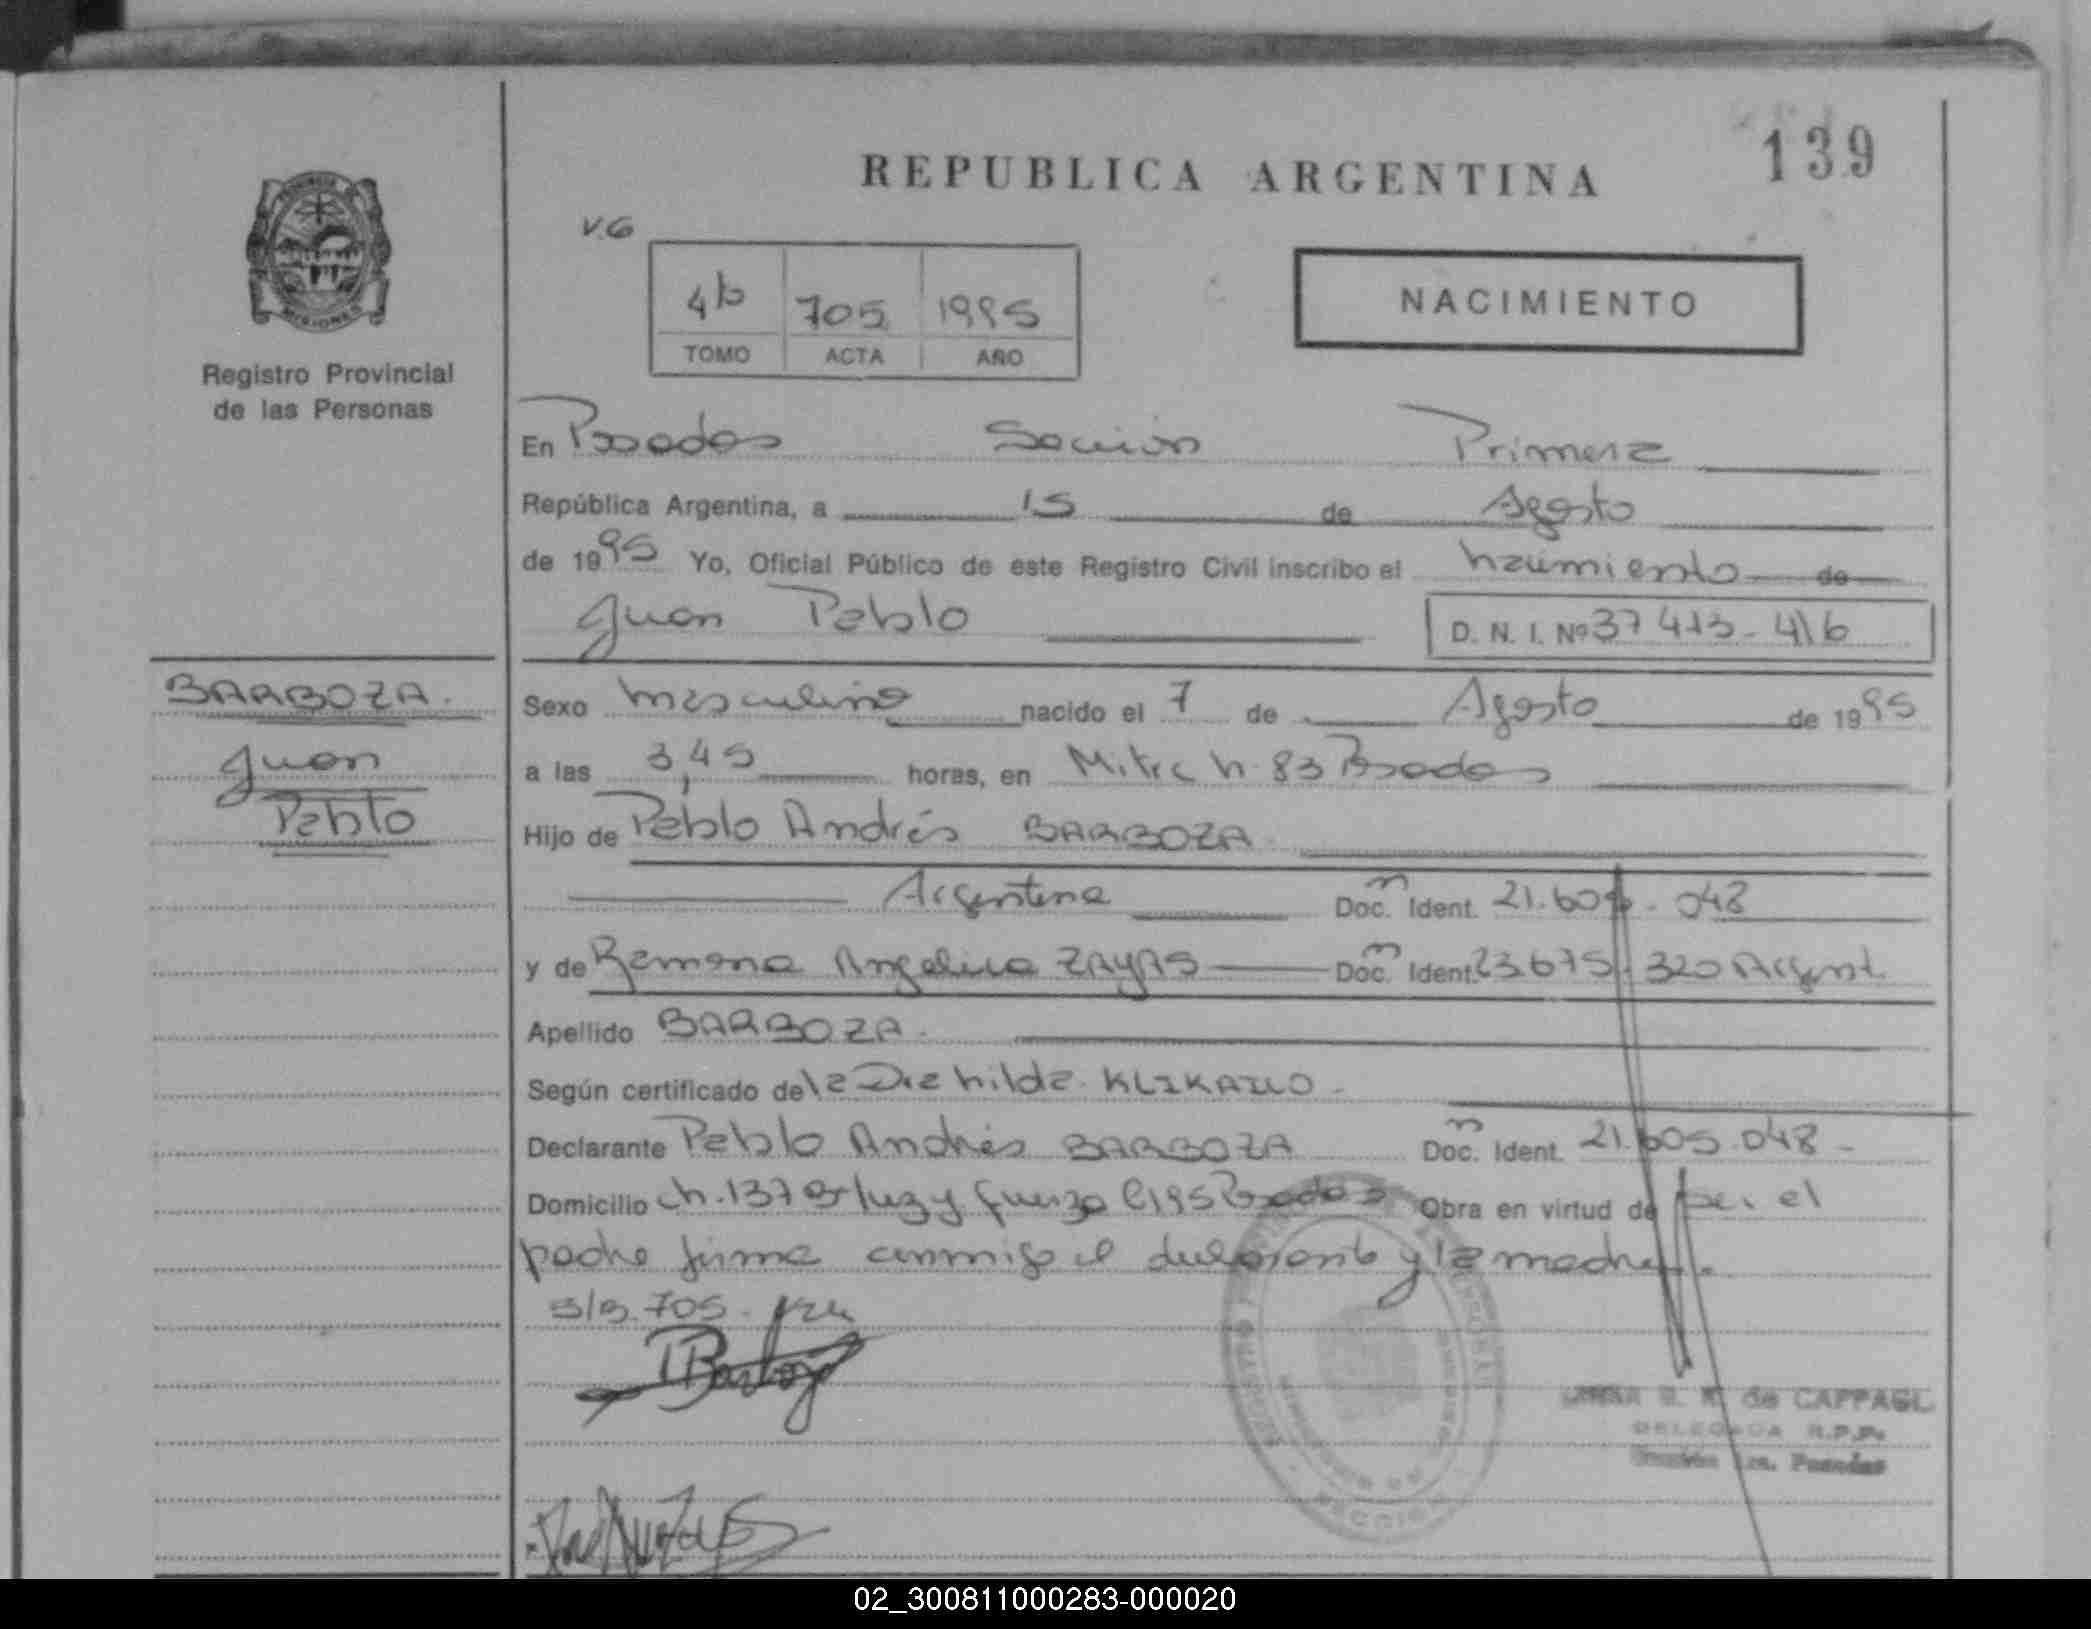 139
REPUBLICA ARGENTINA
V.G
4to 705 1995
TOMO ACTA AÑO
NACIMIENTO
MISIONES
Registro Provincial
de las Personas
En Posadas Sección Primera
República Argentina, a 15 de Agosto
de 1995 Yo, Oficial Público de este Registro Civil inscribo el nacimiento de
Juan Pablo D. N. I. Nº 37 413-416
BARBOZA.
Juan
Pablo
Sexo masculino nacido el 7 de Agosto de 1995
a las 3,45 horas, en Mitre n. 83 Posadas
Hijo de Pablo Andrés BARBOZA
Argentina Doc. Ident. 21.605.048
y de Ramona Angelica ZAYAS Doc. Ident. 23.675.320 Argent.
Apellido BARBOZA.
Según certificado de la Dra hilda KLIKAILO
Declarante Pablo Andrés BARBOZA Doc. Ident. 21.605.048
Domicilio ch. 137 Br luz y fuerza Posadas Obra en virtud de ser el
padre firma conmigo el declarante y la madre.
705
de CAPPAGL
DELEGADA R.P.P.
Sección 1ra. Posadas
02_300811000283-000020